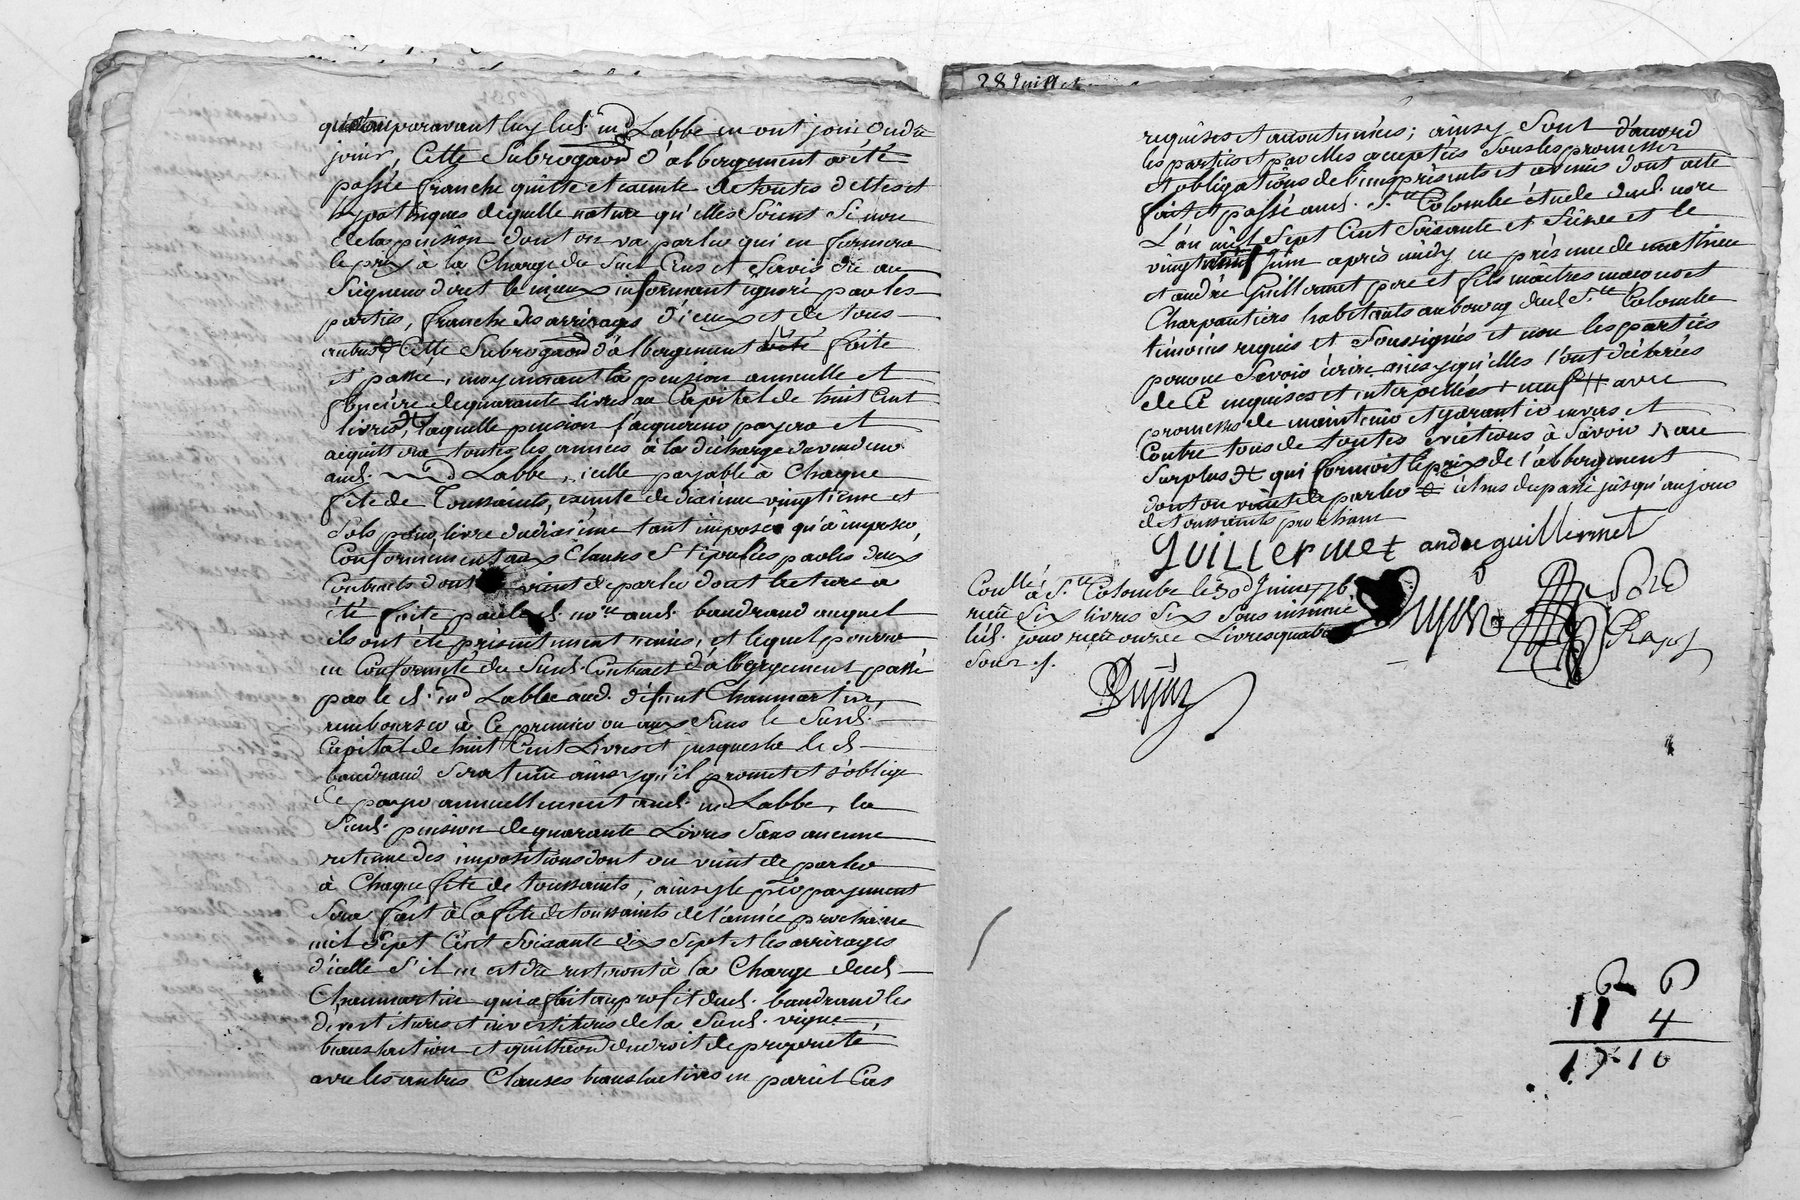 auparavant luy led. md Labbé en ont joui ou du
jouir, Cette Subrogaõn d'albergement a été
passée franche quitte et exemte de toutes dettes et
hypotheques de quelle nature qu'elles Soient Si non
de la pension dont on va parler qui en formera
le prix à la Charge du Sud. Cens et Servis dû au
Seigneur direct le mieux informant ignoré par les
parties, franche des arrérages d'iceux et de tous
autres Cette Subrogaõn d'albergement faite
et passée, moyennant la pension annuelle et
fonciére de quarante livres au Capital de huit Cent
livres, laquelle pension l'acquereur payera et
acquittera toutes les années à la décharge du vendeur
aud. md Labbé, icelle payable à Chaque
fête de Toussaints, exemte de dixième vingtieme et
Sols pour livre du dixiéme tant imposés qu'à imposer,
Conformément aux Clauses Stipulées par les deux
Contrats dont vient de parler dont lecture a
été faite par le d. nore aud. baudrand auquel
ils ont été présentement remis, et lequel pourra
en Conformité du Sud. Contract d'albergement passé
par le d. md Labbé aud. défunt Chaumartin,
rembourser à Ce premier ou aux Siens le Sud.
Capital de huit Cent Livres et jusques ha le d.
baudrand Sera tenu ainsy qu'il promet et s'oblige
de payer annuellement aud. md Labbé, la
Sud. pension de quarante Livres Sans aucune
retenue des impositions dont on vient de parler
à Chaque fête de toussaints, ainsy le pér payement
Sera fait à la fête de toussaints de l'année prochaine
mil Sept Cent Soixante dix Sept et les arrérages
d'icelle S'il en est dû resteront à la Charge dud.
Chaumartin qui a fait au profit dud. baudrand les
dévestitures et investitures de la Sud. vigne
translation et du droit de proprieté,
avec les autres Clauses translatives en pareil Cas
28 Juillet
requises et acoutumées; ainsy Sont d'acord
les parties et par elles acceptées Sous les promesses
et obligations de biens présents et avenir dont acte
fait et passé aud. Ste Colombe étude dud. nore
L'an mil Sept Cent Soixante et Seize et le
vingt Juin après midy en présence de mathieu
et andré Guillermet pere et fils maîtres maçons et
Charpantiers habitants au bourg dud. Ste Colombe
témoins requis et Soussignés et non les parties
pour ne Savoir écrire ainsy qu'elles l'ont déclarées
de Ce enquises et interpellées + neuf # avec
promesse de maintenir et garantir envers et
Contre tous de toutes évictions à Savoir X au
Surplus qui formoit le prix de l'albergement
dont on vient de parler cens du passé jusqu'au jour
de toussaints prochain
GUILLERMET andré guillermet
Conllé à Ste Colombe le 30 Juin 1776
recû Six livres Six Sous insinué
led. jour recû onze Livres quatre
Sous ./.
Dujat
6 6
11 4
17 10